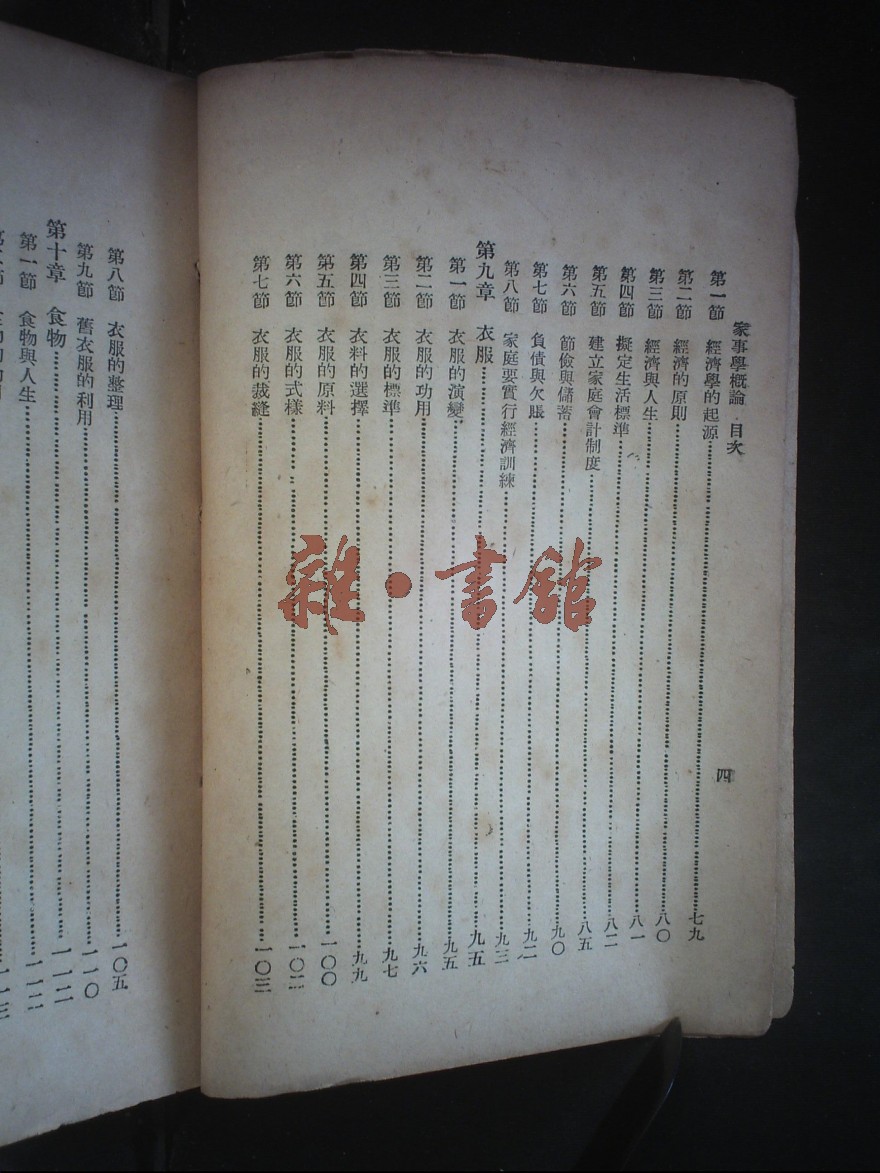 家事學概論 目次
四
第一節 經濟學的起源…………七九
第二節 經濟的原則…………八〇
第三節 經濟與人生…………八一
第四節 擬定生活標準…………八二
第五節 建立家庭會計制度…………八五
第六節 節儉與儲蓄…………九〇
第七節 負債與欠賬…………九二
第八節 家庭要實行經濟訓練…………九三
第九章 衣服…………九五
第一節 衣服的演變…………九五
第二節 衣服的功用…………九六
第三節 衣服的標準…………九七
第四節 衣料的選擇…………九九
第五節 衣服的原料…………一〇〇
第六節 衣服的式樣…………一〇二
第七節 衣服的裁縫…………一〇三
第八節 衣服的整理…………一〇五
第九節 舊衣服的利用…………一一〇
第十章 食物…………一一二
第一節 食物與人生…………一一二
雜·書館